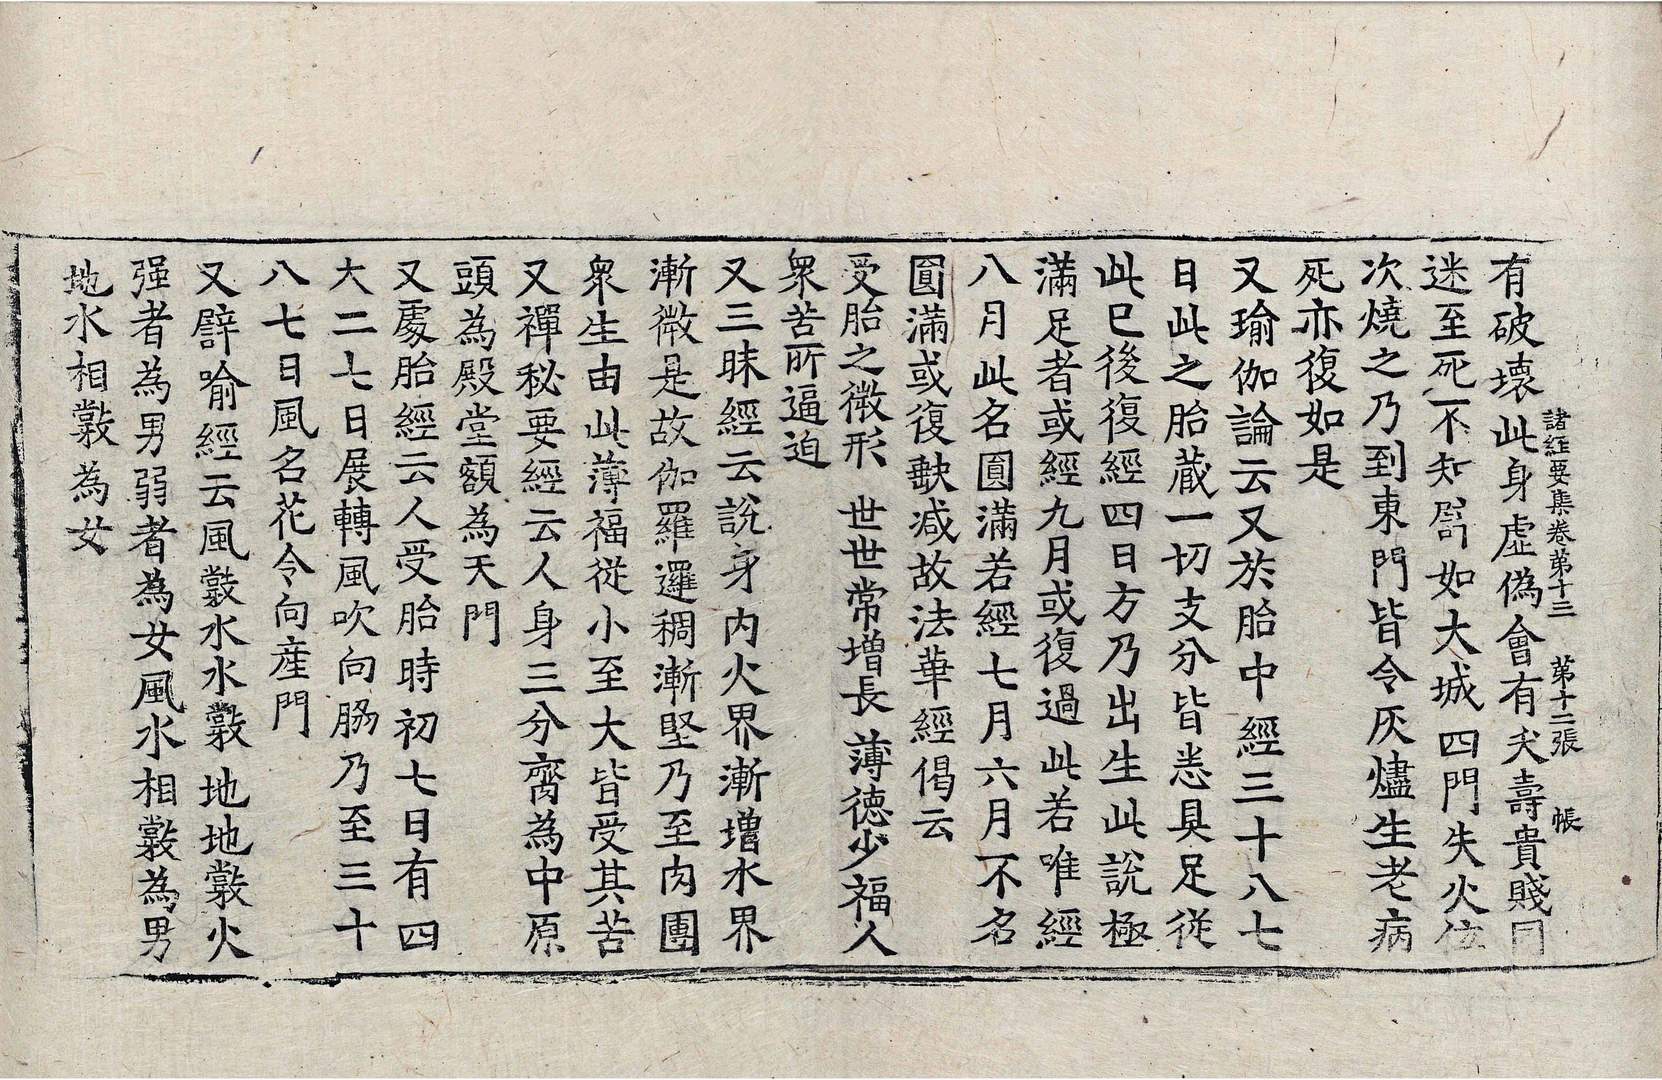 諸經要集卷第十三 第十二張 帳
有破壞此身虛僞會有夭壽貴賤同
迷至死不知譬如大城四門失火依
次燒之乃到東門皆令灰燼生老病
死亦復如是
又瑜伽論云又於胎中經三十八七
日此之胎藏一切支分皆悉具足從
此已後復經四日方乃出生此說極
滿足者或經九月或復過此若唯經
八月此名圓滿若經七月六月不名
圓滿或復缺減故法華經偈云
受胎之微形 世世常增長 薄德少福人
衆苦所逼迫
又三昧經云說身內火界漸增水界
漸微是故伽羅邏稠漸堅乃至肉團
衆生由此薄福從小至大皆受其苦
又禪秘要經云人身三分齎為中原
頭為殿堂額為天門
又處胎經云人受胎時初七日有四
大二七日展轉風吹向脇乃至三十
八七日風名花令向産門
又譬喻經云風敪水水敪地地敪火
强者為男弱者為女風水相敪為男
地水相敪為女